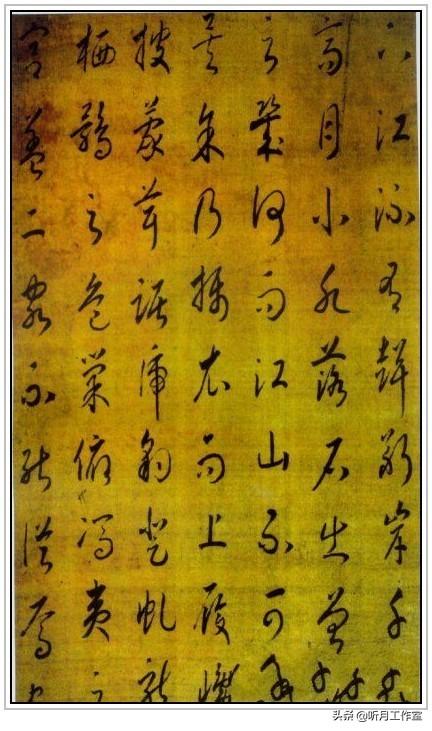 下江流有聲斷岸千
高月小水落石出曾
之幾何而江山不可復
矣予乃攝衣而上履巉
披蒙茸踞虎豹登虬龍
栖鶻之危巢俯馮夷之
宮蓋二客不能從焉
头条 @听月工作室